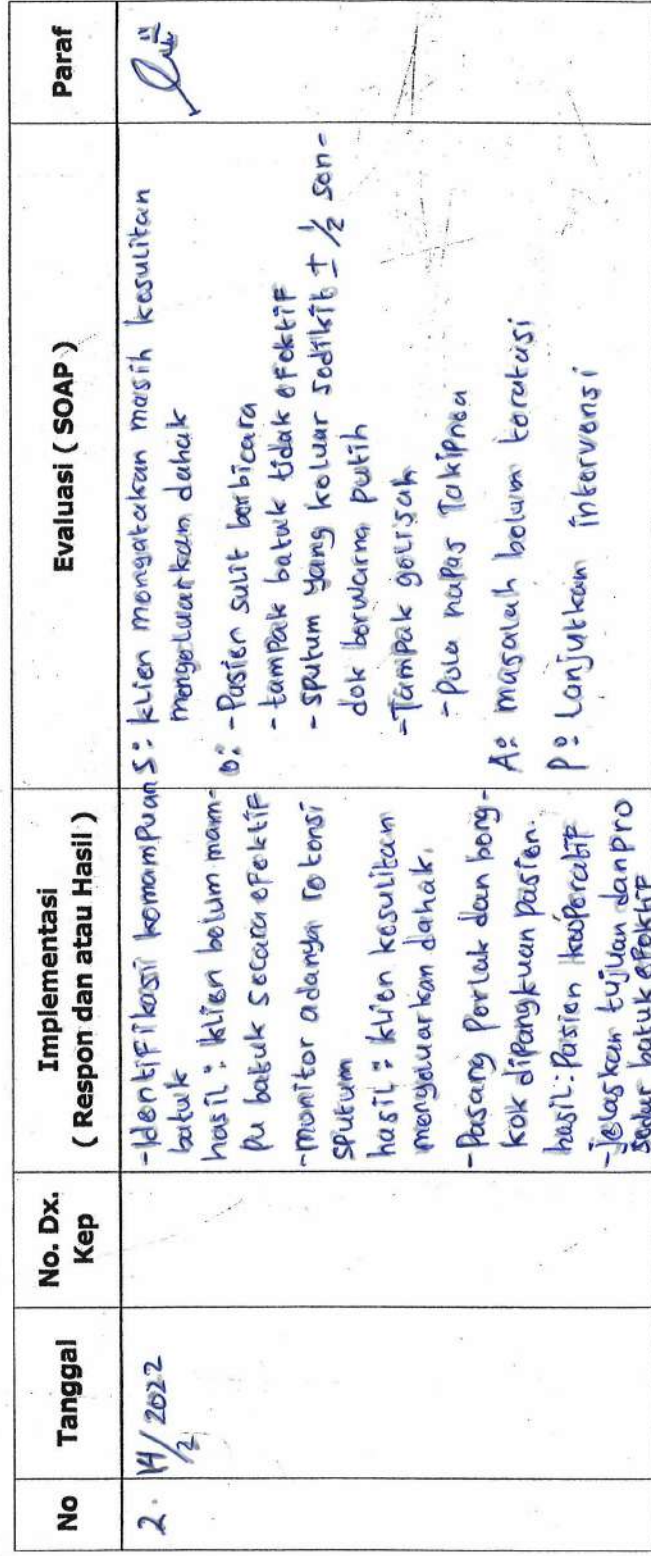 No
Tanggal
No. Dx.
Kep
Implementasi
( Respon dan atau Hasil )
Evaluasi ( SOAP )
Paraf
2.
14/2 2022
- Identifikasi komampuan
batuk
hasil : klien belum mam-
pu batuk secara efektif
- monitor adanya retensi
sputum
hasil : klien kesulitan
mengeluarkan dahak.
- Pasang Perlak dan beng-
kok dipangkuan pasien.
hasil : Pasien kooperatif
- jelaskan tujuan dan pro
sedur batuk efektif
S : klien mengatakan masih kesulitan
mengeluarkan dahak
O : - Pasien sulit berbicara
- tampak batuk tidak efektif
- sputum yang keluar sedikit ± 1/2 sen-
dok berwarna putih
- Tampak gelisah
- Pola napas Takipnea
A : masalah belum teratasi
P : Lanjutkan intervensi